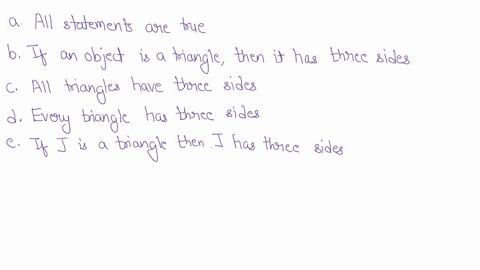 a. All statements are true
b. If an object is a triangle, then it has three sides
c. All triangles have three sides
d. Every triangle has three sides
e. If J is a triangle then J has three sides